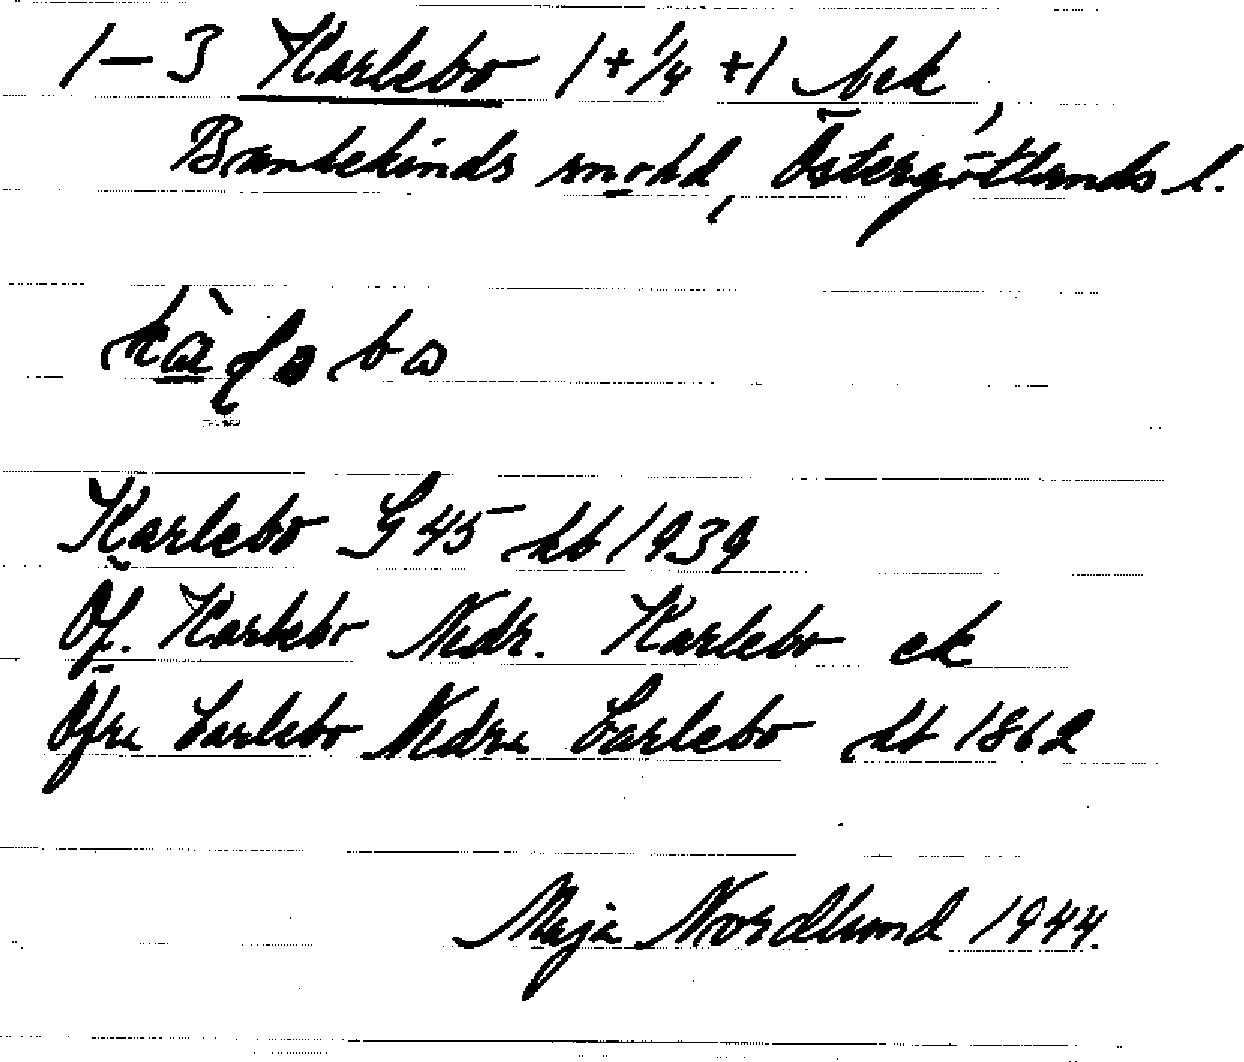 1–3 Karlebo 1+1/4+1 bek,
Bankekinds snohd, Östergötlands l.
Karlebo G 45 kb 1939
Öf. Karlebo Nedr. Karlebo ek
Öfre Larlebo Nedre Larlebo kb 1862
Maja Nordlund 1944.